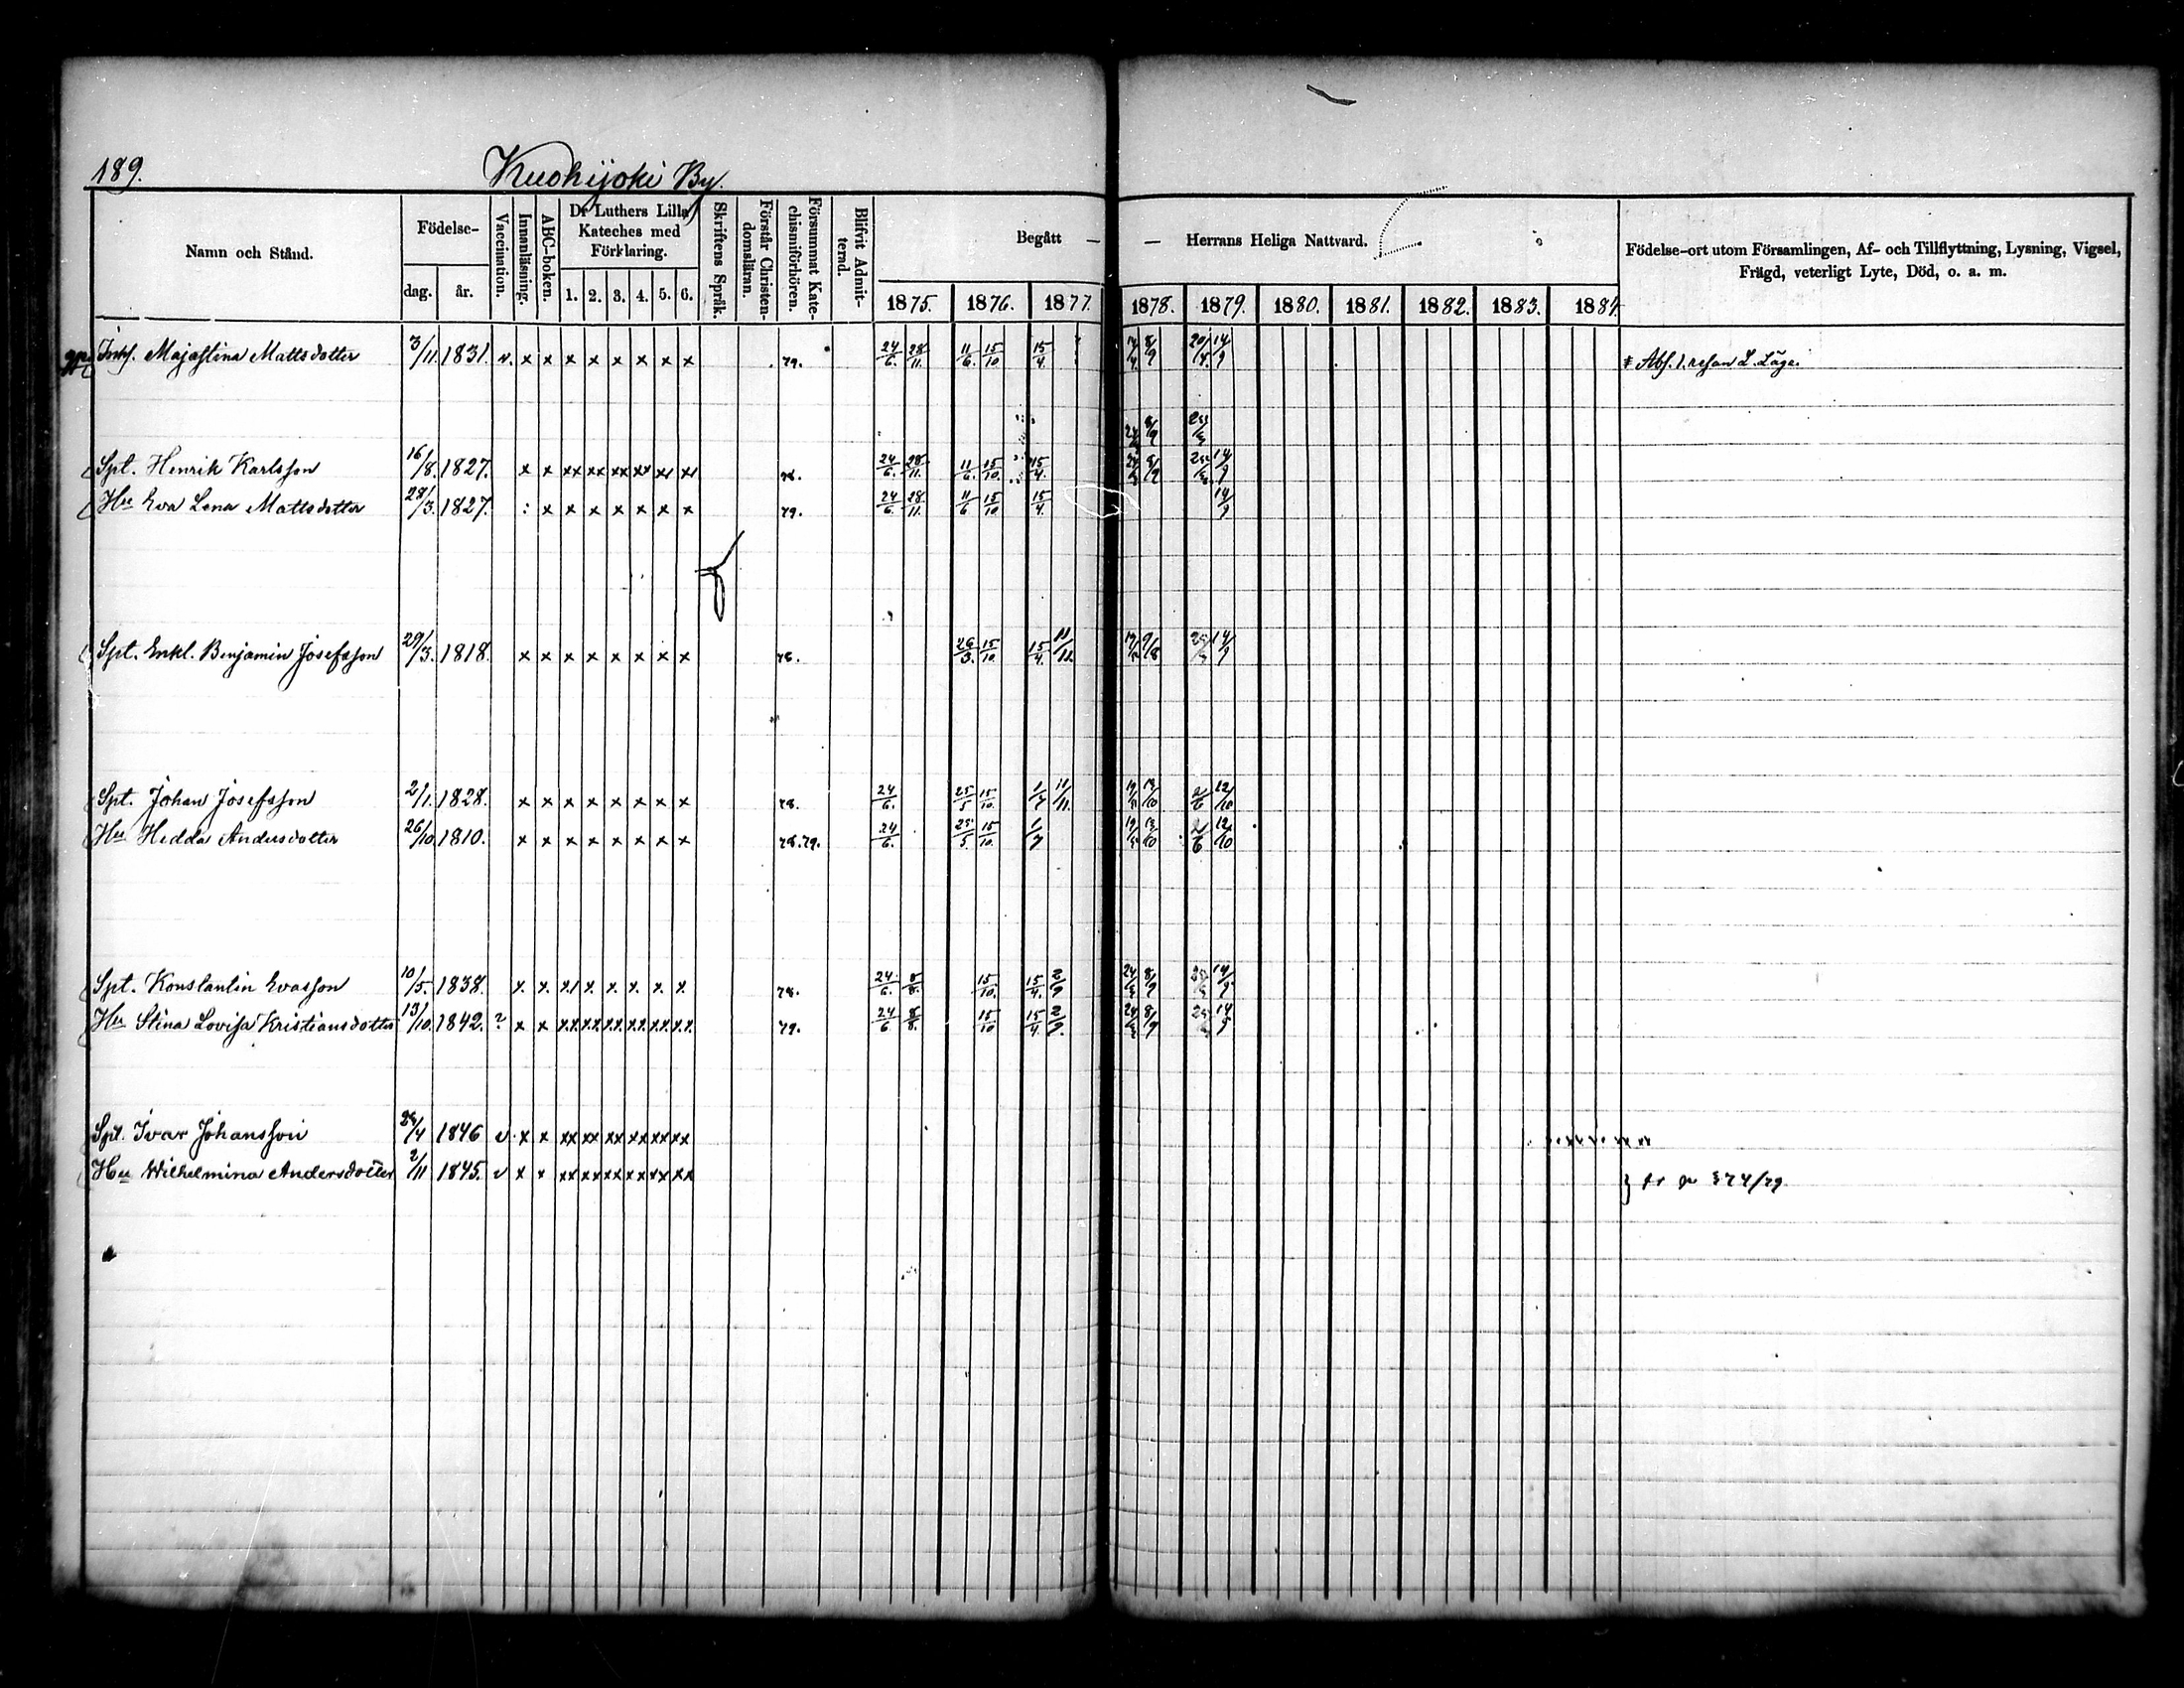 189. Kuohijoki By.
Namn och Stånd. Födelse- dag. år. Vaccination. Innanläsning. ABC-boken. Dr Luthers Lilla Kateches med Förklaring. 1. 2. 3. 4. 5. 6. Skriftens Språk. Förstår Christendomsläran. Försummat Katechismiförhören. Blifvit Admitterad. Begått — — Herrans Heliga Nattvard. Födelse-ort utom Församlingen, Af- och Tillflyttning, Lysning, Vigsel, Frägd, veterligt Lyte, Död, o. a. m.
1875. 1876. 1877. 1878. 1879. 1880. 1881. 1882. 1883. 1884
Majastina Mattsdotter 3/11. 1831. v. x x x x x x x x 79. 24/6. 28/11. 11/6. 15/10 15/4. 8/9 14/9 Abs. 1. resan L. Läge.
Spt. Henrik Karlsson 16/8. 1827. x x xx xx xx xx xx xx 24/6. 28/11. 11/6. 15/10. 15/4. 8/9 14/9
Hu Eva Lena Mattsdotter 28/3. 1827. x x x x x x x 79. 24/6. 28/11. 11/6 15/10 15/4. 14/9
Spt. Enkl. Benjamin Josefsson 29/3. 1818. x x x x x x x x 78. 26/3. 15/10. 15/4. 11/11. 14/9
Spt. Johan Josefsson 2/1. 1828. x x x x x x x x 78. 24/6. 25/5 15/10. 1/7 11/11. 13/10 2/6 12/10
Hu Hedda Andersdotter 26/10 1810. x x x x x x x x 78. 79. 24/6. 25/5. 15/10. 1/7 13/10 2/6 12/10
Spt. Konstantin Evasson 10/5. 1838. x. x. x x. x. x. x. x. 78. 24/6. 8/8. 15/10. 15/4. 2/9 8/9 14/9
Hu Stina Lovisa Kristiansdotter 13/10. 1842. ? x x xx xx xx xx xx xx 79. 24/6 8/8. 15/10 15/4. 2/9. 8/9 14/9
Spt. Ivar Johansson 1846 v. x x xx xx xx xx xx xx
Hu Wilhelmina Andersdotter 2/11 1845. v x x xx xx xx xx xx xx 374/79.